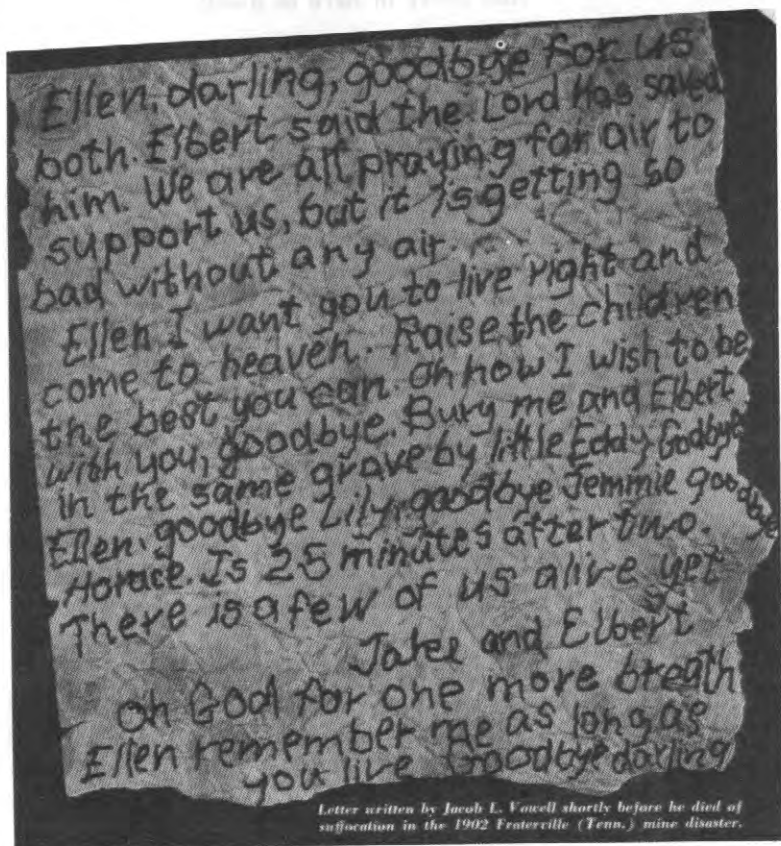 Ellen, darling, goodbye for us
both. Elbert said the Lord Has saved
him. We are all praying for air to
support us, but it is getting so
bad without any air.
Ellen I want you to live right and
come to heaven. Raise the children
the best you can. Oh how I wish to be
with you, goodbye. Bury me and Elbert
in the same grave by little Eddy Godbye
Ellen, goodbye Lily, goodbye Jemmie goodbye
Horace. Is 25 minutes after two.
There is a few of us alive yet
Jake and Elbert
Oh God for one more breath
Ellen remember me as long as
you live Goodbye darling
Letter written by Jacob L. Vowell shortly before he died of
suffocation in the 1902 Fraterville (Tenn.) mine disaster.